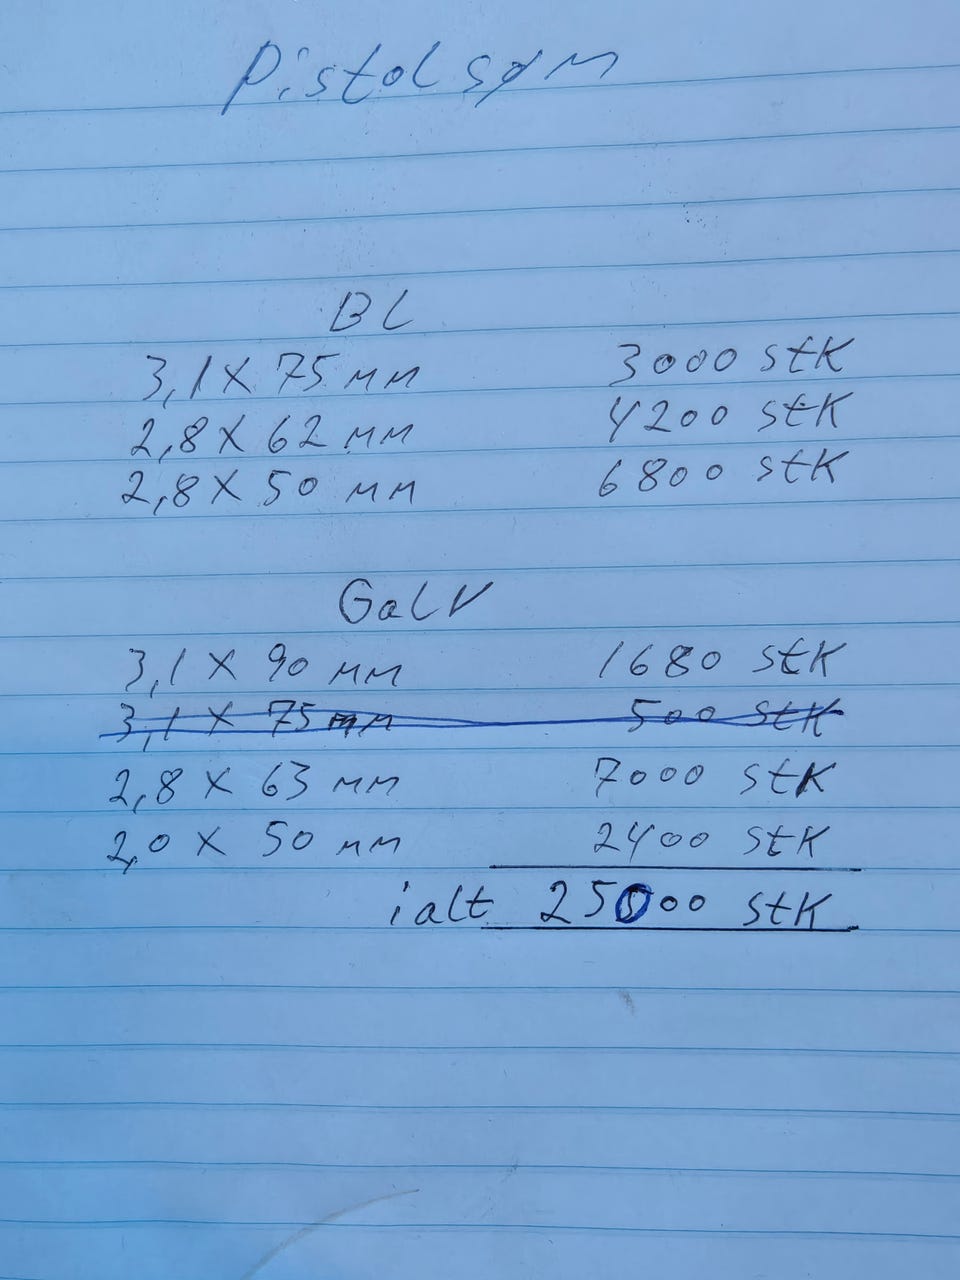 Pistolsøm
BL
3,1 X 75 mm 3000 stk
2,8 X 62 mm 4200 stk
2,8 X 50 mm 6800 stk
GaLV
3,1 X 90 mm 1680 stk
3,1 X 75 mm 500 stk
2,8 X 63 mm 7000 stk
2,0 X 50 mm 2400 stk
ialt 25000 stk